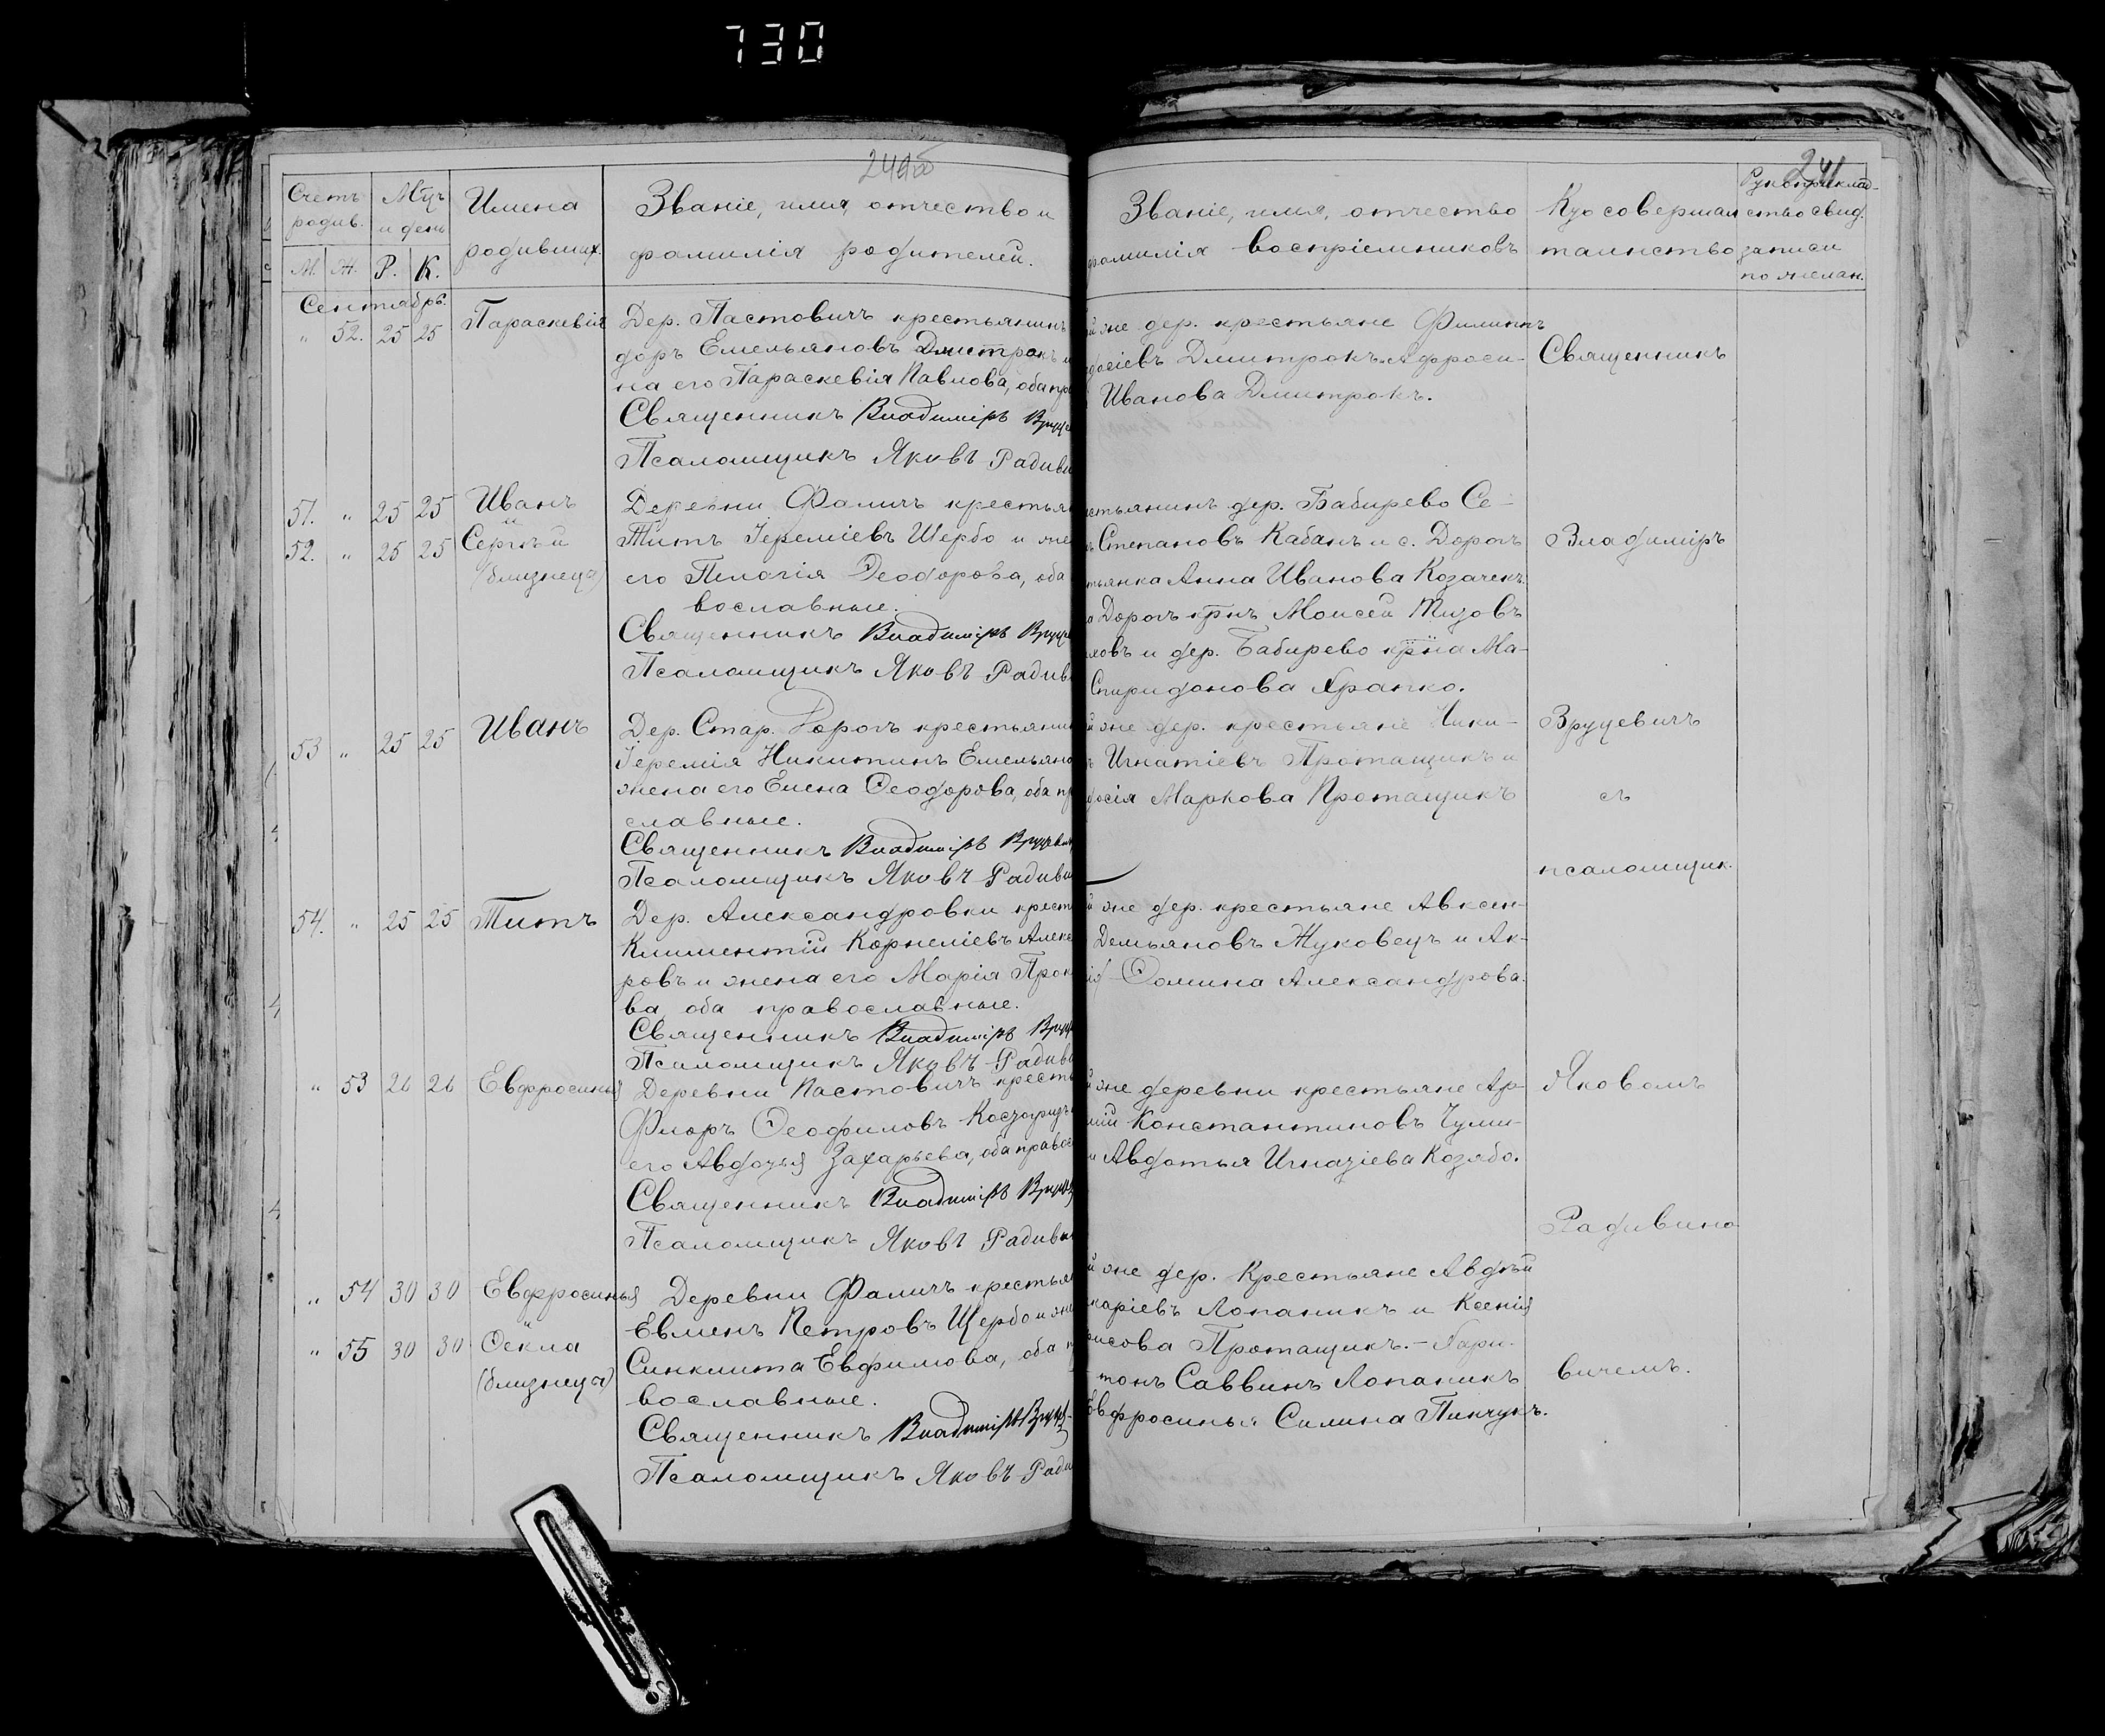 730
241
Счетъ родив.
М. Ж.
Мѣц. и день
Р. К.
Имена
родивших.
Званіе, имя, отчество и
фамилія родителей.
Званіе, имя, отчество
фамилія воспріемниковъ
Кто совершал
таинство
Рукоприклад-
ство свид.
записи
по желан.
Сентябрь.
" 52. 25 25 Параскевія
Дер. Пастовичъ крестьянинъ
доръ Емельяновъ Дмитрокъ и
на его Параскевія Павлова, оба пр
Священникъ Владиміръ Вруце
Псаломщикъ Яковъ Радиви
же дер. крестьяне Филиппъ
Дмитрокъ и Афроси-
Иванова Дмитрокъ.
Священникъ
51. " 25 25 Иванъ
и
52. " 25 25 Сергѣй
(близнецы)
Деревни Фаличъ крестья
Титъ Іереміевъ Щербо и же
его Пелагія Ѳеодорова, оба
вославные.
Священникъ Владиміръ Вруце
Псаломщикъ Яковъ Радив
стьянинъ дер. Бабирево Се-
Степановъ Кабанъ и с. Дорогъ
тьянка Анна Иванова Козачекъ.
Дорогъ крнъ Моисей Тизовъ
ловъ и дер. Бабирево крна Ма-
Спиридонова Храпко.
Владиміръ
53 " 25 25 Иванъ
Дер. Стар. Дорогъ крестьянин
Іеремія Никитинъ Емельяно
жена его Елена Ѳеодорова, оба пр
славные.
Священникъ Владиміръ Вруцеви
Псаломщикъ Яковъ Радиви
же дер. крестьяне Ники-
Игнатіевъ Протащикъ и
досія Маркова Протащикъ
Вруцевичъ
съ
псаломщик.
54. " 25 25 Титъ
Дер. Александровки крест
Климентій Корнеліевъ Алекс
ровъ и жена его Марія Прок
ва, оба православные.
Священникъ Владиміръ Вруц
Псаломщикъ Яковъ Радиви
же дер. крестьяне Авксен-
Демьяновъ Жуковецъ и Ак-
Ѳомина Александрова.
" 53 26 26 Евфросинія
Деревни Пастовичъ кресть
Флоръ Ѳеофиловъ
его Авдотья Захарьева, оба правос
Священникъ Владиміръ Вруце
Псаломщикъ Яковъ Радиви
же деревни крестьяне Ар-
Константиновъ Чуми-
и Авдотья Игнатіева Козябо.
Яковомъ
Радивино
" 54 30 30 Евфросинья
и
" 55 30 30 Ѳекла
(близнецы)
Деревни Фаличъ крестья
Евменъ Петровъ Щербо и же
Синклита Евфимова, оба п
вославные.
Священникъ Владиміръ Вруце
Псаломщикъ Яковъ Ради
же дер. крестьяне Авдѣй
каріевъ Лопаникъ и Ксенія
рисова Протащикъ. - Хари-
тонъ Саввинъ Лопаникъ
Евфросинья Силина Пинчукъ.
вичемъ.